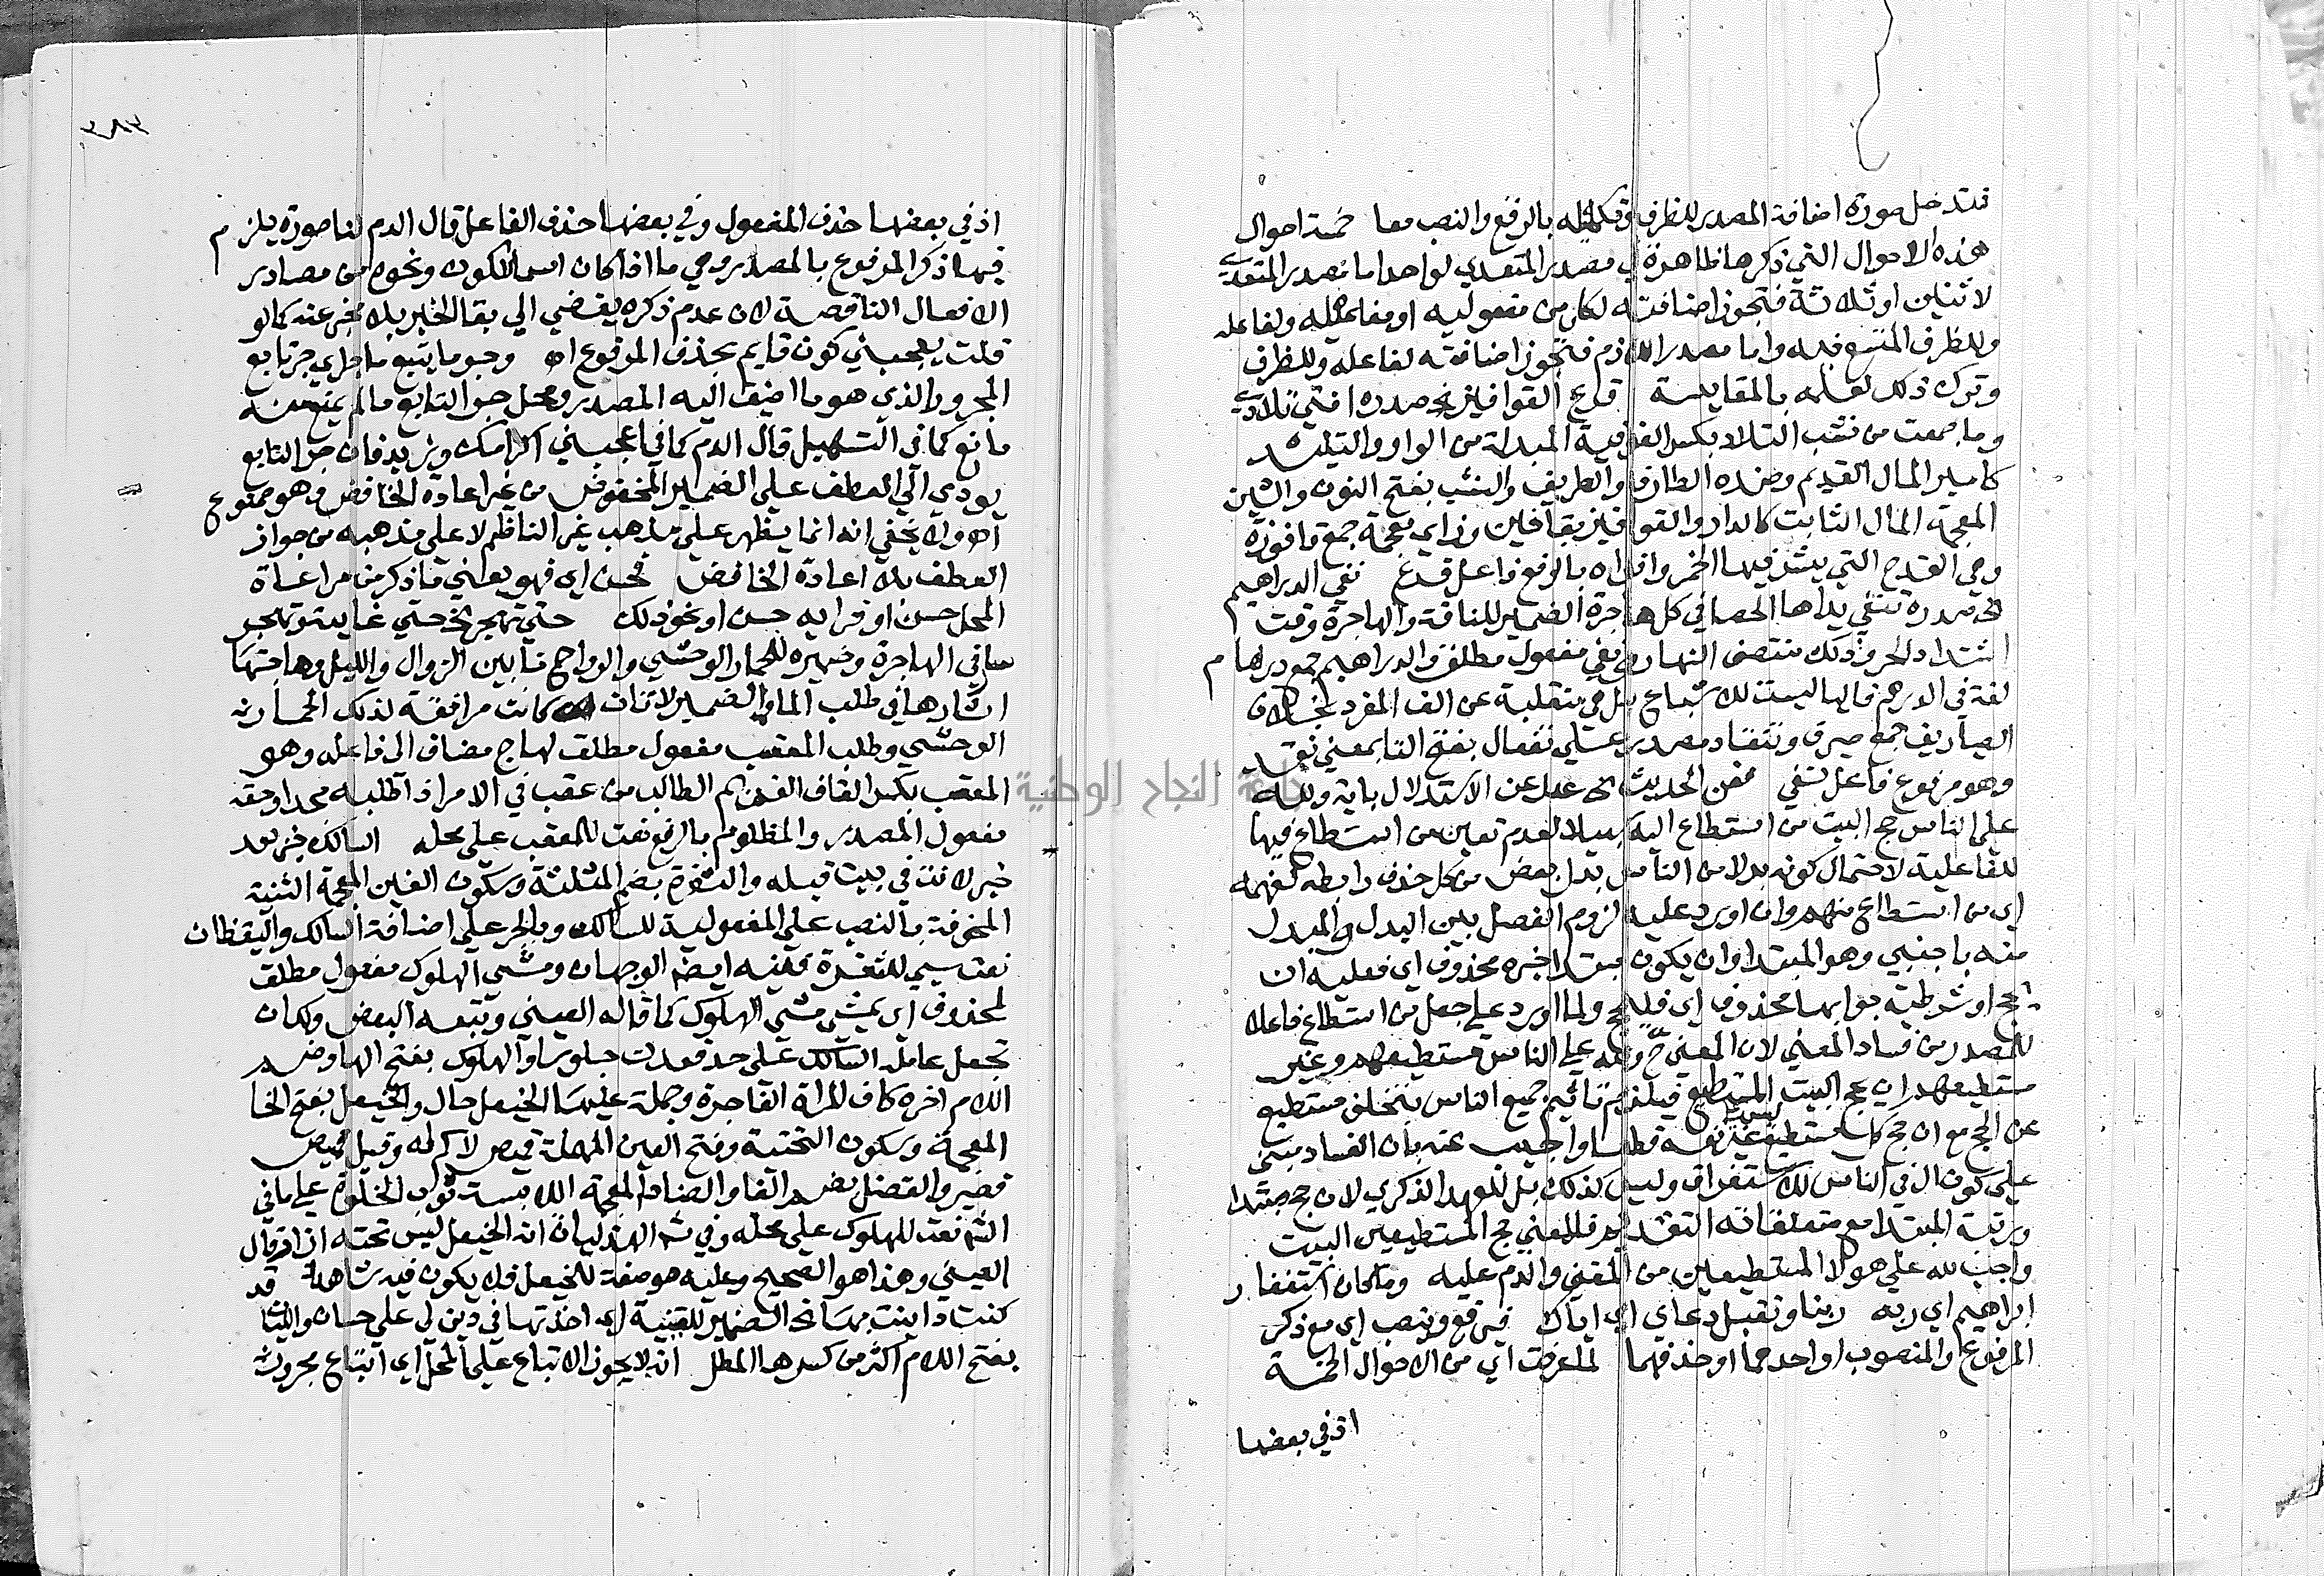 فتدخل صورة اضافة المصدر للظرف وتكميله بالرفع والنصب معا خمسة احوال
هذه الاحوال التي ذكرها ظاهرة في مصدر المتعدي لواحد اما مصدر المتعدي
لاثنين او ثلاثة فتجوز اضافته لكل من مفعوليه او مفاعيله ولفاعله
وللظرف المتسع فيه واما مصدر اللازم فتجوز اضافته لفاعله وللظرف
وترك ذلك لعلمه بالمقايسة قرع القوافيز صدره افنى تلادي
وما جمعت من نشب التلاد بكسر الفوقية المبدلة من الواو والتليد
كامير المال القديم وضده الطارف والطريف والنشب بفتح النون والشين
المعجمة المال الثابت كالدار والقوافيز بقاف فالف وزاي معجمة جمع قافوزة
وهي القدح التي يشرب فيها الخمر وافواه بالرفع فاعل قرع نفي الدراهيم
الخ صدره تنفي يداها الحصا في كل هاجرة الضمير للناقة والهاجرة وقت
اشتداد الحر وذلك منتصف النهار ونفي مفعول مطلق والدراهيم جمع درهام
لغة في الدرهم فالها ليست للاشباع بل هي منقلبة عن الف المفرد بخلاف
الصياريف جمع صيرف وتنقاد مصدر على تفعال بفتح التا بمعنى نقد
وهو مرفوع فاعل تنفي ففي الحديث الخ عدل عن الاستدلال باية ولله
على الناس حج البيت من استطاع اليه سبيلا لعدم تعين من استطاع فيها
للفاعلية لاحتمال كونه بدلا من الناس بدل بعض من كل حذف رابطه لفهمه
اي من استطاع منهم وان اورد عليه لزوم الفصل بين البدل والمبدل
منه باجنبي وهو المبتدا وان يكون مبتدا خبره محذوف اي فعليه ان
يحج او شرطية جوابها محذوف اي فليحج ولما اورد على جعل من استطاع فاعلا
للمصدر من فساد المعنى لان المعنى ح ولله على الناس مستطيعهم وغير
مستطيعهم ان يحج البيت المستطيع فيلزم تاثيم جميع الناس بتخلف مستطيع
عن الحج مع ان حج كل مستطيع عن نفسه قطعا واجيب عنه بان الفساد مبني
على كون ال في الناس للاستغراق وليس كذلك بل للعهد الذكري لان حج مبتدا
ورتبة المبتدا مع متعلقاته التقديم فالمعنى حج المستطيعين البيت
واجب لله على هولا المستطيعين من المغني والدم عليه وما كان استغفار
ابراهيم اي ربه ربنا وتقبل دعاي اي اياك فيرفع وينصب اي مع ذكر
المرفوع والمنصوب او احدهما او حذفهما لما عرفت اي من الاحوال الخمسة
اذ في بعضها
٣٨٣
اذ في بعضها حذف المفعول وفي بعضها حذف الفاعل قال الدم لنا صورة يلزم
فيها ذكر المرفوع بالمصدر وهي ما اذا كان اسما للكون ونحوه من مصادر
الافعال الناقصة لان عدم ذكره يفضي الى بقا الخبر بلا مخبر عنه كما لو
قلت يعجبني كون قايم بحذف المرفوع اه وجر ما يتبع ما جر اي جر تابع
المجرور الذي هو ما اضيف اليه المصدر ومحل جر التابع ما لم يمنع منه
مانع كما في التسهيل قال الدم كما في اعجبني اكرامك وزيد فان جر التابع
يودي الى العطف على الضمير المخفوض من غير اعادة الخافض وهو ممنوع
اه ولا يخفى انه انما يظهر على مذهب غير الناظم لا على مذهبه من جواز
العطف بلا اعادة الخافض فحسن اي فهو يعني ما ذكر من مراعاة
المحل حسن او فرايه حسن او نحو ذلك حتى تهجر الخ حتى غاييتر وتهجر
سار في الهاجرة وضميره للحمار الوحشي والرواح ما بين الزوال والليل وهاجها
اثارها في طلب الما والضمير لاتان كانت مرافقة لذلك الحمار
الوحشي وطلب المعقب مفعول مطلق لهاج مضاف الى فاعله وهو
المعقب بكسر القاف الغريم الطالب من عقب في الامر اذا طلبه مجدا وحقه
مفعول المصدر والمظلوم بالرفع نعت للمعقب على محله السالك خبر بعد
خبر لانت في بيت قبله والثغرة بضم المثلثة وسكون الغين المعجمة الثنية
المخوفة بالنصب على المفعولية للسالك وبالجر على اضافة السالك واليقظان
نعت سببي للثغرة ففيه ايضا الوجهان ومشي الهلوك مفعول مطلق
لمحذوف اي يمشي مشي الهلوك كما قاله العيني وتبعه البعض ولك ان
تجعل عامله السالك على حد قعدت جلوسا والهلوك بفتح الها وضم
اللام اخره كاف المراة الفاجرة وجملة عليها الخيعل حال والخيعل بفتح الخا
المعجمة وسكون التحتية وفتح العين المهملة قميص لا كم له وقيل قميص
قصير والفضل بضم الفا والضاد المعجمة اللابسة ثوب الخلوة على ما في
الشم نعت للهلوك على محله وفي شم الهذليان انه الخيعل ليس تحته ازار قال
العيني وهذا هو الصحيح وعليه هو صفة للخيعل فلا يكون فيه شاهد قد
كنت داينت بها الخ الضمير للقينة اي اخذتها في دين لي على حسان والليانا
بفتح اللام اكثر من كسرها المطل انه لا يجوز الاتباع على المحل اي اتباع مجرور